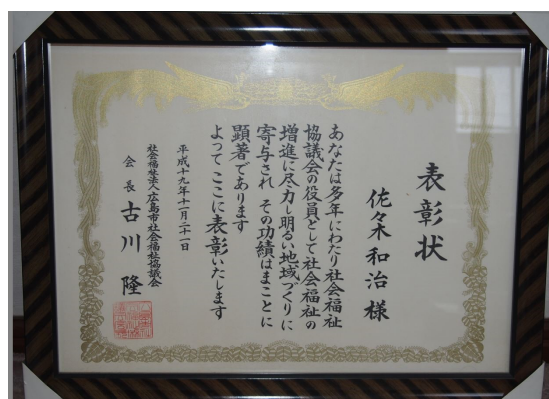 表彰状
佐々木和治 様
あなたは多年にわたり社会福祉
協議会の役員として社会福祉の
増進に尽力し明るい地域づくりに
寄与され その功績はまことに
顕著であります
よってここに表彰いたします
平成十九年十一月二十一日
社会福祉法人広島市社会福祉協議会
会長 古川 隆